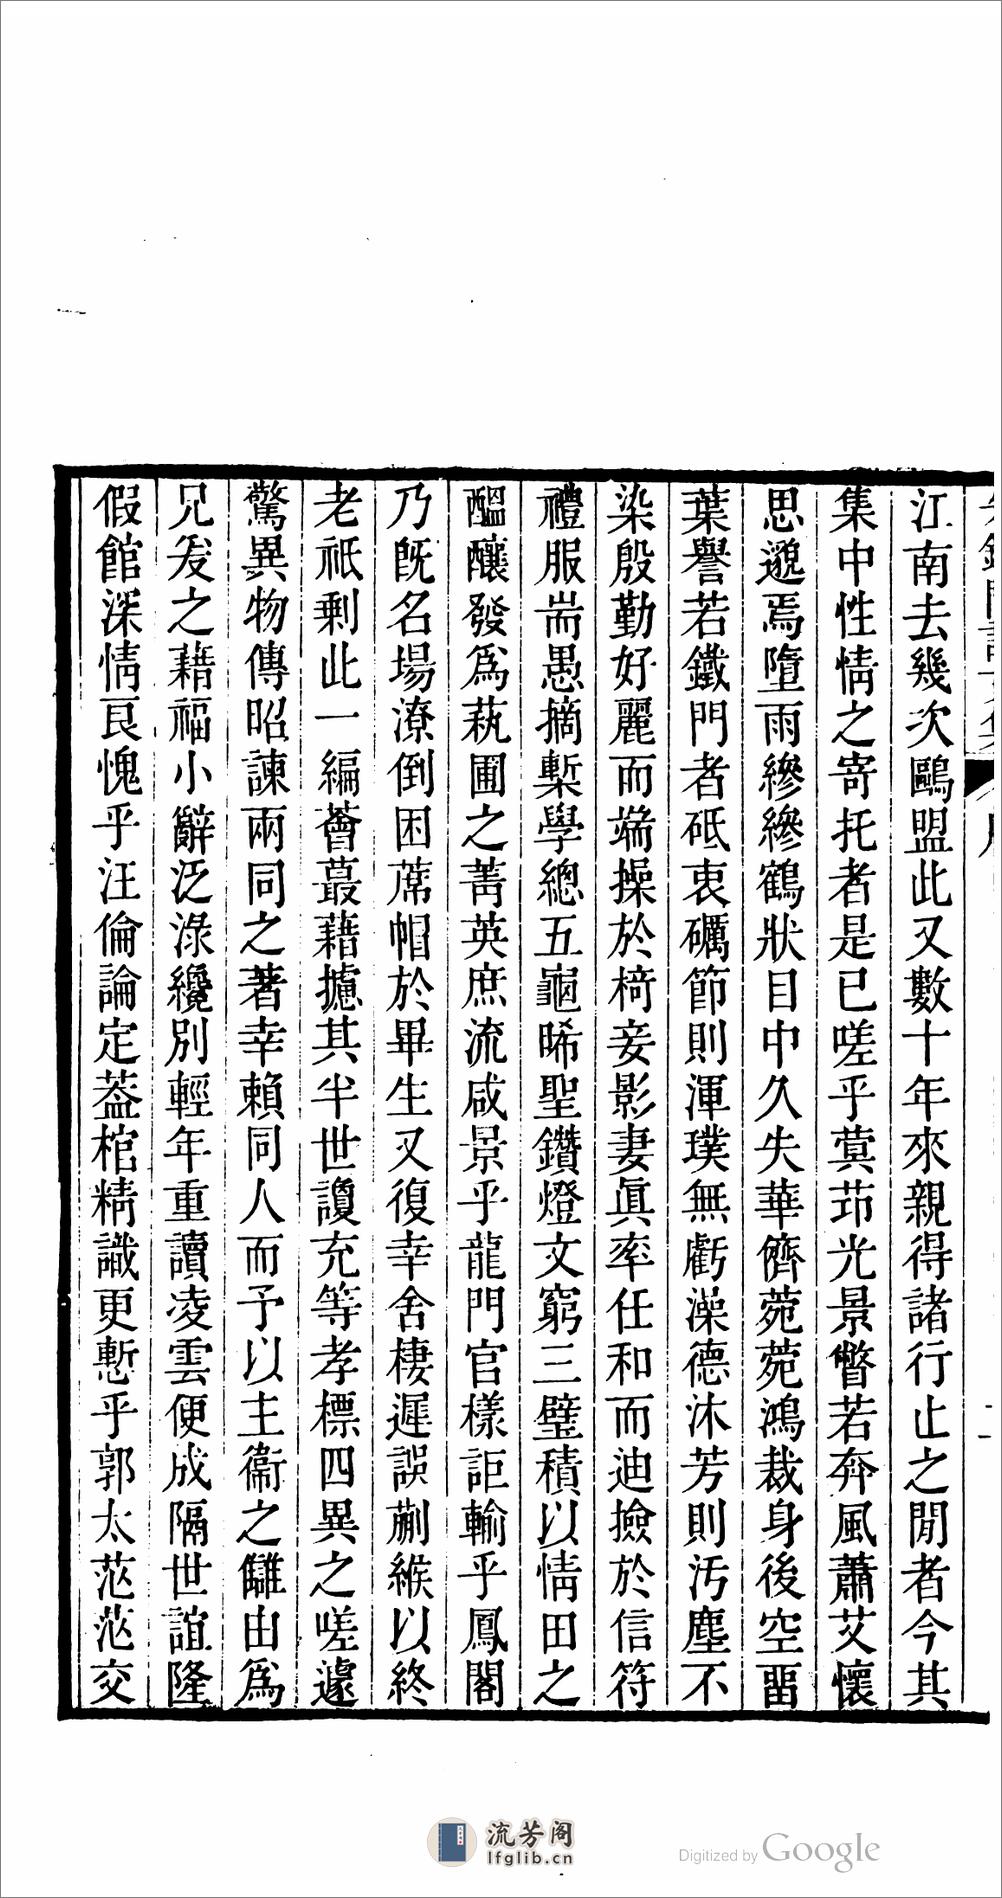 江南去幾次鷗盟此又數十年來親得諸行止之閒者今其
集中性情之寄托者是已嗟乎蓂茆光景瞥若奔風蕭艾懷
思邈焉墮雨縿縿鶴狀目中久失華儕菀菀鴻裁身後空畱
葉譽若鐵門者砥衷礪節則渾璞無虧澡德沐芳則汚塵不
染殷勤好麗而端操於椅妾影妻眞率任和而迪撿於信符
禮服耑愚摘槧學總五龜晞聖鑽燈文窮三璧積以情田之
醞釀發爲萟圃之菁英庶流咸景乎龍門官樣詎輸乎鳳閣
乃旣名場潦倒困蓆帽於畢生又復幸舍棲遲誤蒯緱以終
老祇剩此一編薈蕞藉攄其半世謏充等孝標四異之嗟遽
驚異物傳昭諫兩同之著幸賴同人而予以主衞之讎由爲
兄友之藉福小辭泛淥纔別輕年重讀凌雲便成隔世誼隆
假館深情艮愧乎汪倫論定葢棺精識更慙乎郭太茫茫交
一
流芳阁
lfglib.cn
Digitized by Google